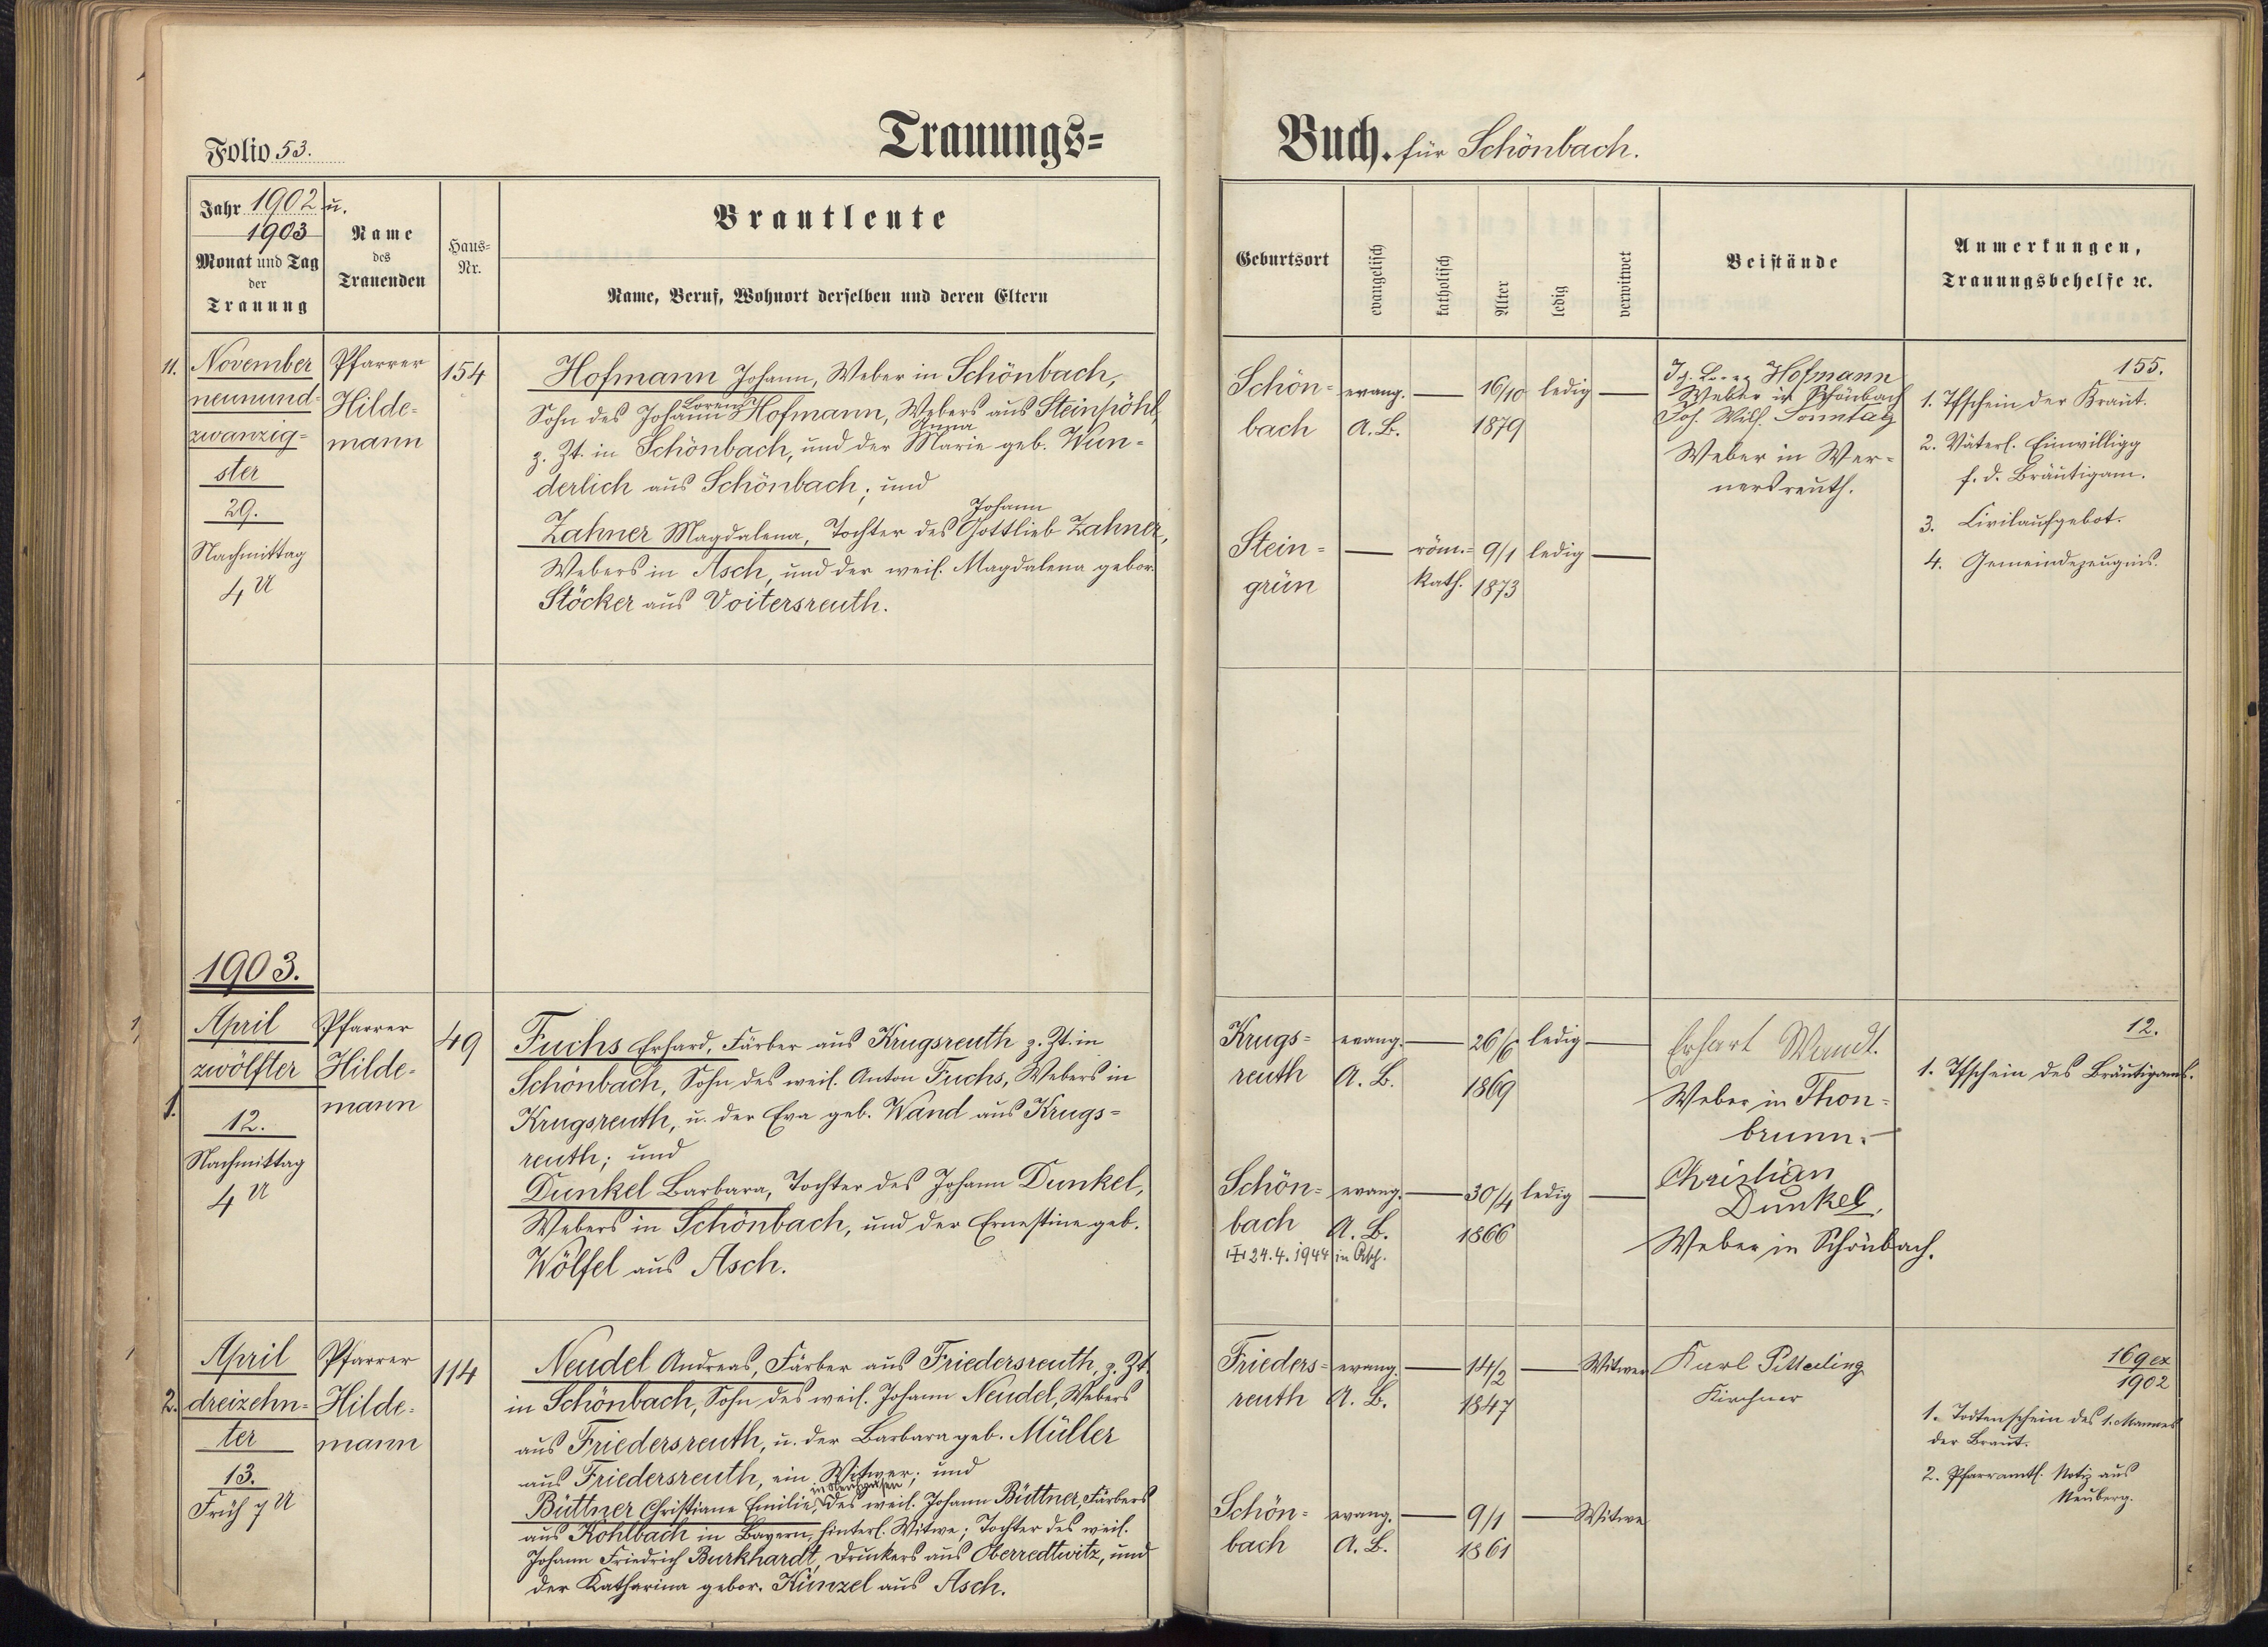 Folio 53.
Trauungs=
Jahr 1902 u.
1903
Monat und Tag
der
Trauung
Name
des
Trauenden
Haus=
Nr.
Brautleute
Name, Beruf, Wohnort derselben und deren Eltern
11. November
neunund=
zwanzig=
ster
29.
Nachmittag
4 U
Pfarrer
Hilde=
mann
154
Hofmann Johann, Weber in Schönbach,
Lorenz
Sohn des Johann Hofmann, Webers aus Steinpöhl,
Anna
z. Zt. in Schönbach, und der Marie geb. Wun=
derlich aus Schönbach; und
Johann
Zahner Magdalena, Tochter des Gottlieb Zahner,
Webers in Asch, und der weil. Magdalena gebor.
Stöcker aus Voitersreuth.
1903.
1
April
zwölfter
1.
12.
Nachmittag
4 U
Pfarrer
Hilde=
mann
49
Fuchs Erhard, Färber aus Krugsreuth z. Zt. in
Schönbach, Sohn des weil. Anton Fuchs, Webers in
Krugsreuth, u. der Eva geb. Wand aus Krugs=
reuth; und
Dunkel Barbara, Tochter des Johann Dunkel,
Webers in Schönbach, und der Ernestine geb.
Wölfel aus Asch.
1
April
2. dreizehn=
ter
13.
Früh 7 U
Pfarrer
Hilde=
mann
114
Neudel Andreas, Färber aus Friedersreuth, z. Zt.
in Schönbach, Sohn des weil. Johann Neudel, Webers
aus Friedersreuth, u. der Barbara geb. Müller
aus Friedersreuth, ein Witwer; und
Büttner Christiane Emilie, des weil. Johann Büttner, Färbers
aus Kohlbach in Bayern, hinterl. Witwe; Tochter des weil.
Johann Friedrich Burkhardt, Druckers aus Oberredtwitz, und
der Katharina gebor. Künzel aus Asch.
Buch. für Schönbach.
Geburtsort
evangelisch
katholisch
Alter
ledig
verwitwet
Beistände
Anmerkungen,
Trauungsbehelfe ꝛc.
Schön= evang. — 16/10 ledig —
bach A. B. 1879
Hofmann
Weber in Schönbach
Joh. Wilh. Sonntag
Weber in Wer=
nersreuth.
155.
1. Tfschein der Braut.
2. Väterl. Einwilligg
f. d. Bräutigam.
3. Civilaufgebot.
4. Gemeindezeugnis.
Stein= — röm.= 9/1 ledig —
grün kath. 1873
Krugs= evang. — 26/6 ledig —
reuth A. B. 1869
Erhart Wandt.
Weber in Thon=
brunn. —
12.
1. Tfschein des Bräutigams.
Schön= evang. — 30/4 ledig —
bach A. B. 1866
24.4.1944 in Asch.
Christian
Dunkel,
Weber in Schönbach.
Frieders= evang. — 14/2 — Witwer
reuth A. B. 1847
Karl
Kirchner
169 ex
1902
1. Todtenschein des 1. Mannes
der Braut.
2. Pfarramtl. Notiz aus
Neuberg.
Schön= evang. — 9/1 — Witwe
bach A. B. 1861